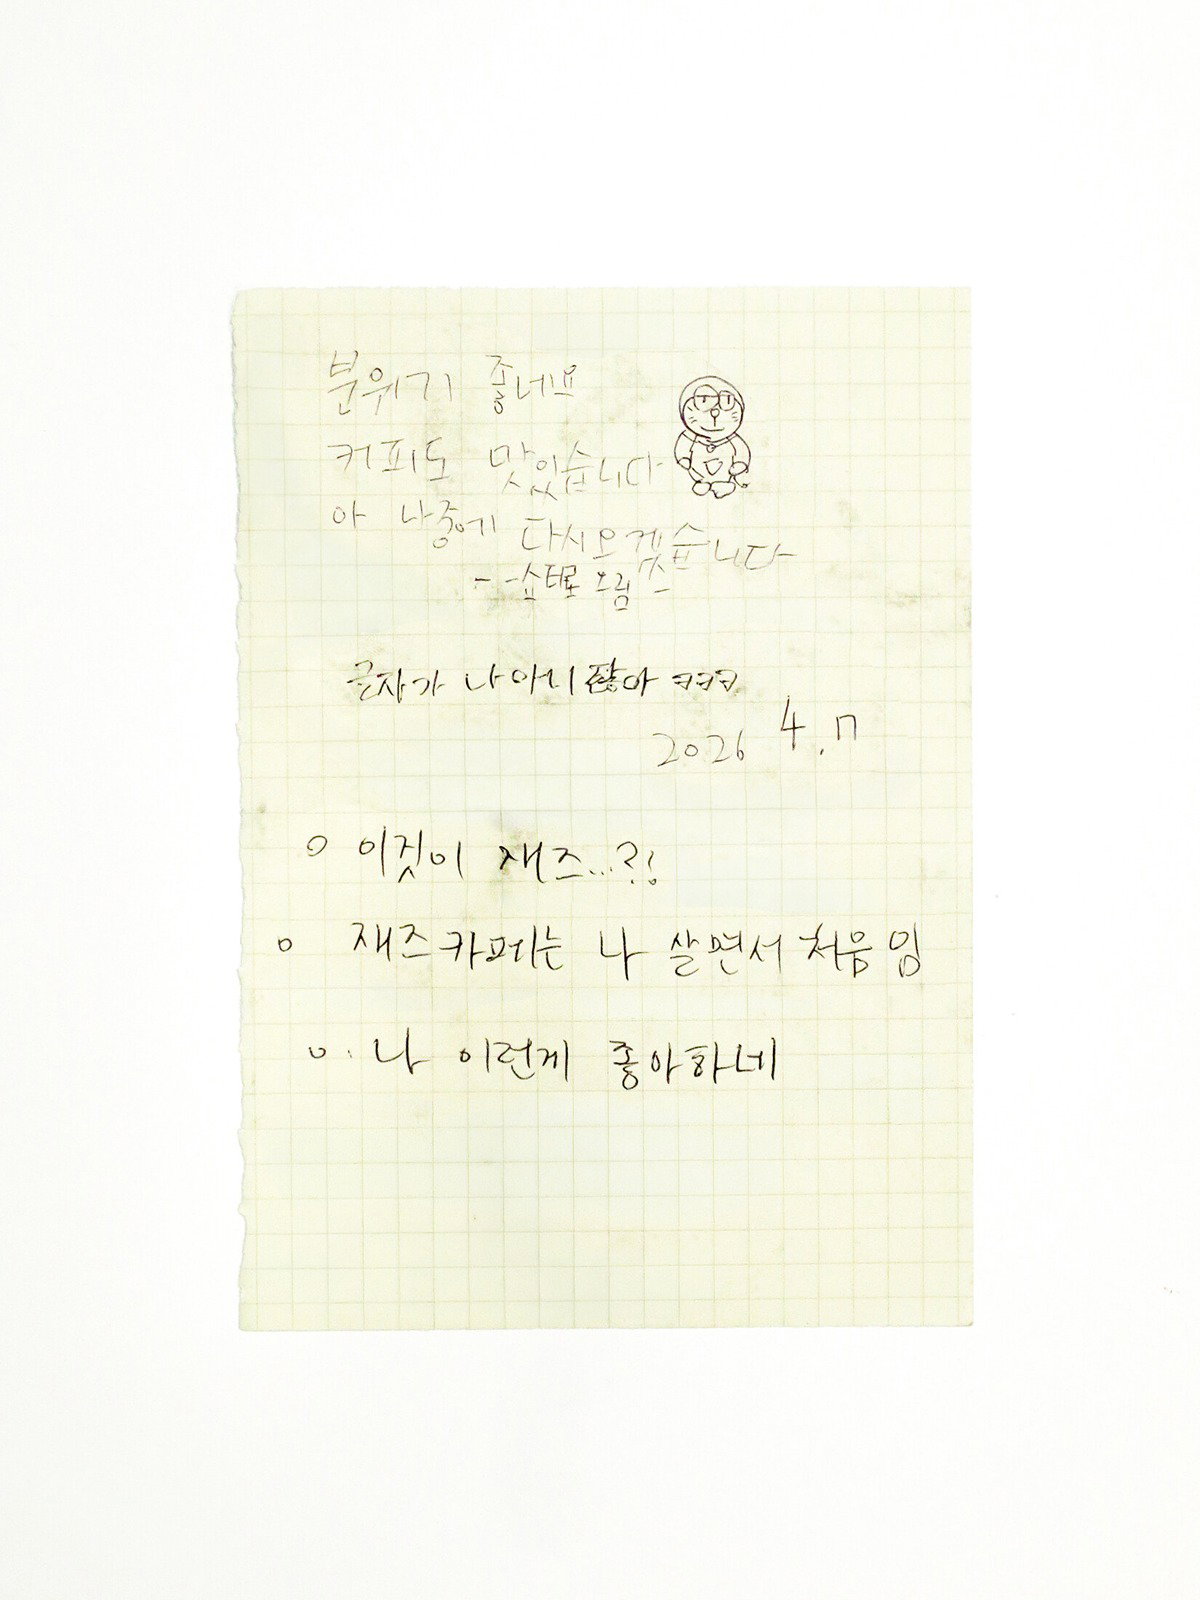 분위기 좋네요
커피도 맛있습니다
아 나중에 다시오겠습니다
글자가 나아니잖아 ㅋㅋㅋ
2026 4.17
이것이 재즈...?!
재즈카페는 나 살면서 처음임
나 이런게 좋아하네